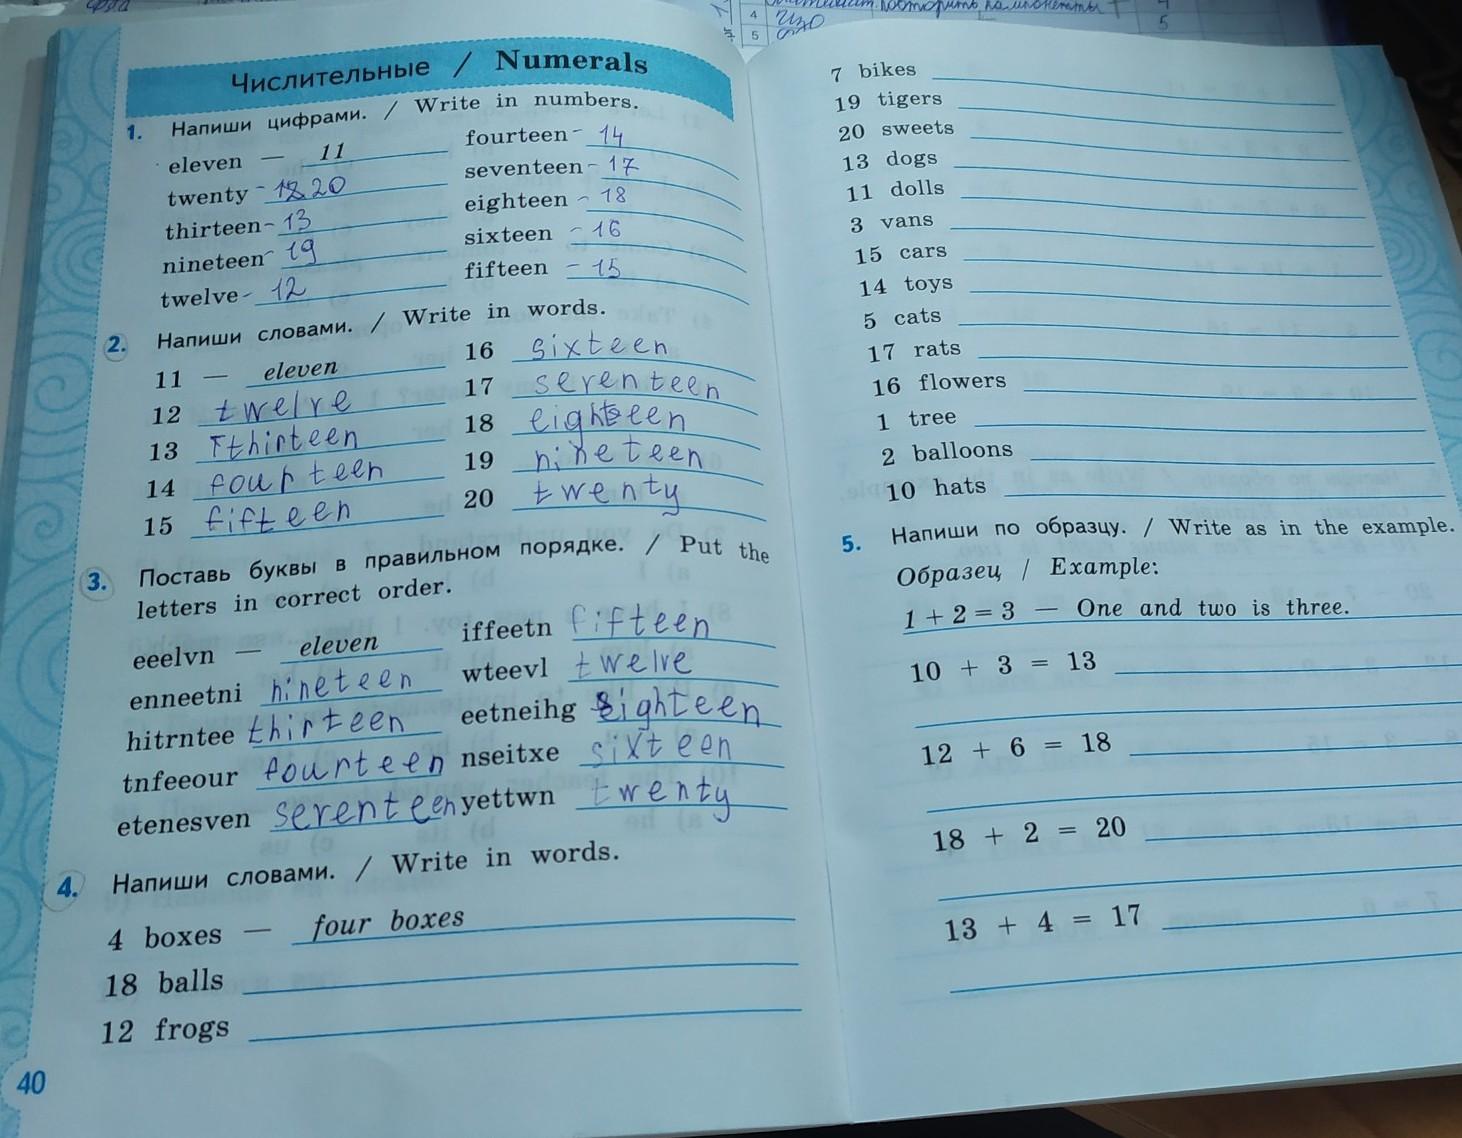 4 ИЗО
5
5
Числительные / Numerals
1. Напиши цифрами. / Write in numbers.
eleven — 11
twenty - 18 20
thirteen - 13
nineteen - 19
twelve - 12
fourteen - 14
seventeen - 17
eighteen - 18
sixteen - 16
fifteen - 15
2. Напиши словами. / Write in words.
11 — eleven
12 twelve
13 Tthirteen
14 fourteen
15 fifteen
16 sixteen
17 seventeen
18 eighteen
19 nineteen
20 twenty
3. Поставь буквы в правильном порядке. / Put the
letters in correct order.
eeelvn — eleven
enneetni nineteen
hitrntee thirteen
tnfeeour fourteen
etenesven seventeen
iffeetn fifteen
wteevl twelve
eetneihg eighteen
nseitxe sixteen
yettwn twenty
4. Напиши словами. / Write in words.
4 boxes — four boxes
18 balls
12 frogs
40
7 bikes
19 tigers
20 sweets
13 dogs
11 dolls
3 vans
15 cars
14 toys
5 cats
17 rats
16 flowers
1 tree
2 balloons
10 hats
5. Напиши по образцу. / Write as in the example.
Образец / Example:
1 + 2 = 3 — One and two is three.
10 + 3 = 13
12 + 6 = 18
18 + 2 = 20
13 + 4 = 17